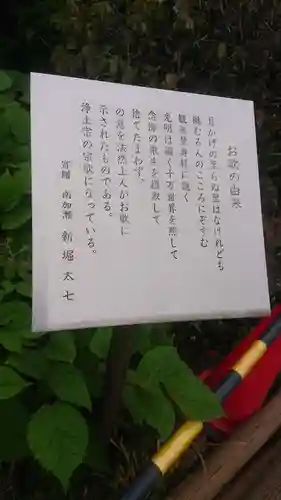 お歌の由来
月かげの至らぬ里はなけれども
眺むる人のこころにぞすむ
観無量寿経に説く
光明は遍く十方世界を照して
念佛の衆生を摂取して
捨てたまわず、
の意を法然上人がお歌に
示されたものである。
浄土宗の宗歌になっている。
寄贈 南加瀬 新堀太七